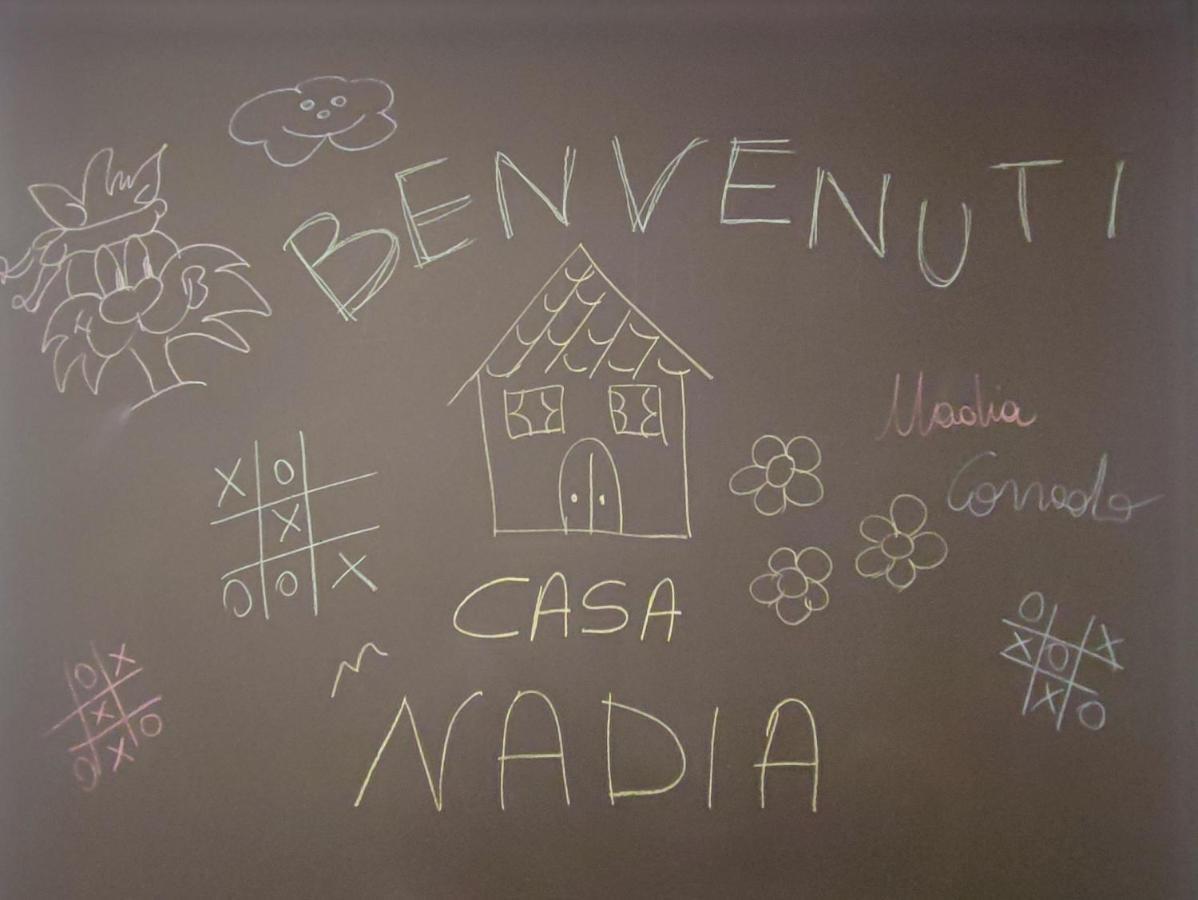 BENVENUTI
Madia
Corrado
CASA
M
NADIA